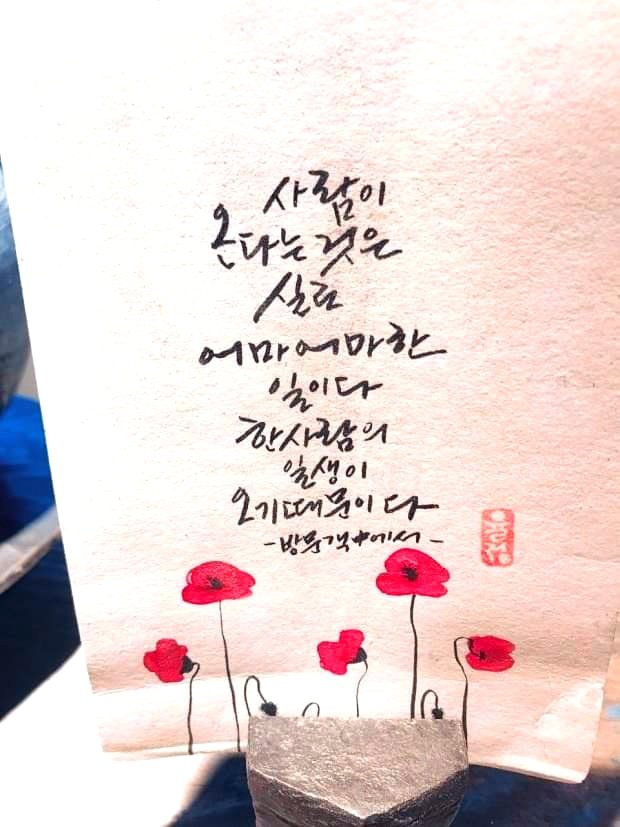 사람이
온다는것은
실로
어마어마한
일이다
한사람의
일생이
오기때문이다
-방문객中에서-